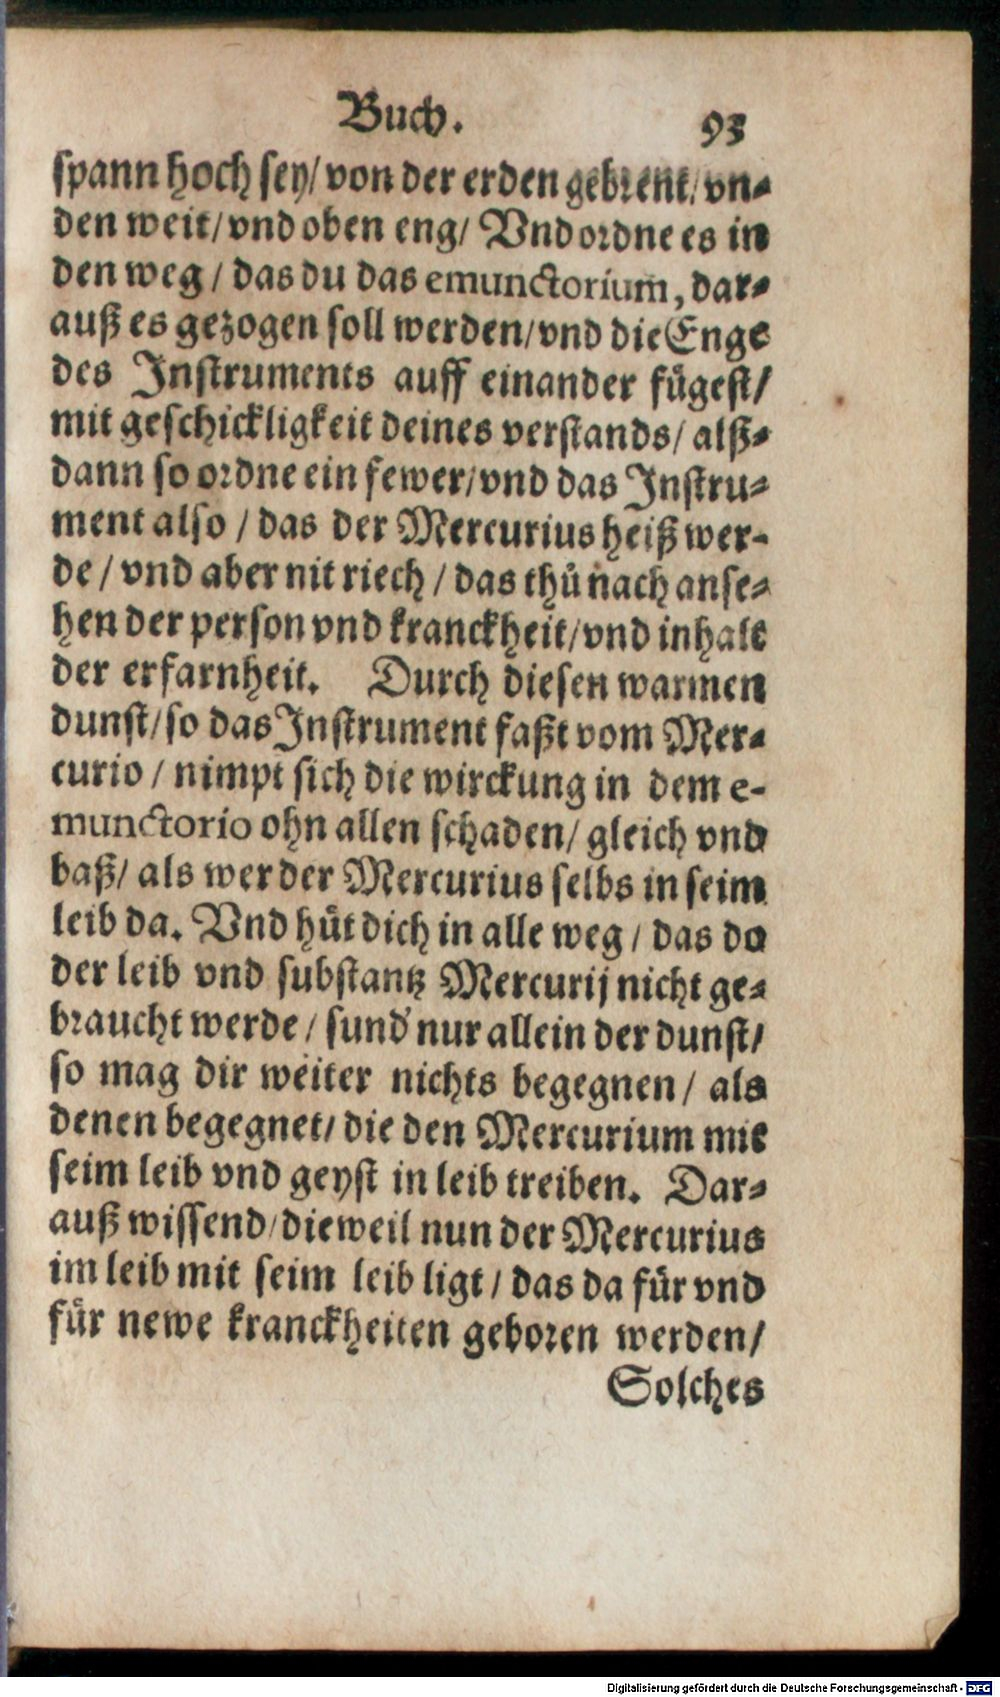 Buch. 93
spann hoch sey/ von der erden gebrent/ vn-
den weit/ vnd oben eng/ Vnd ordne es in
den weg/ das du das emunctorium, dar-
auß es gezogen soll werden/ vnd die Enge
des Instruments auff einander fügest/
mit geschickligkeit deines verstands/ alß-
dann so ordne ein fewer/ vnd das Instru-
ment also/ das der Mercurius heiß wer-
de/ vnd aber nit riech/ das thů nach anse-
hen der person vnd kranckheit/ vnd inhalt
der erfarnheit. Durch diesen warmen
dunst/ so das Instrument faßt vom Mer-
curio/ nimpt sich die wirckung in dem e-
munctorio ohn allen schaden/ gleich vnd
baß/ als wer der Mercurius selbs in seim
leib da. Vnd hüt dich in alle weg/ das da
der leib vnd substantz Mercurij nicht ge-
braucht werde/ sund' nur allein der dunst/
so mag dir weiter nichts begegnen/ als
denen begegnet/ die den Mercurium mit
seim leib vnd geyst in leib treiben. Dar-
auß wissend/ dieweil nun der Mercurius
im leib mit seim leib ligt/ das da für vnd
für newe kranckheiten geboren werden/
Solches
Digitalisierung gefördert durch die Deutsche Forschungsgemeinschaft - DFG